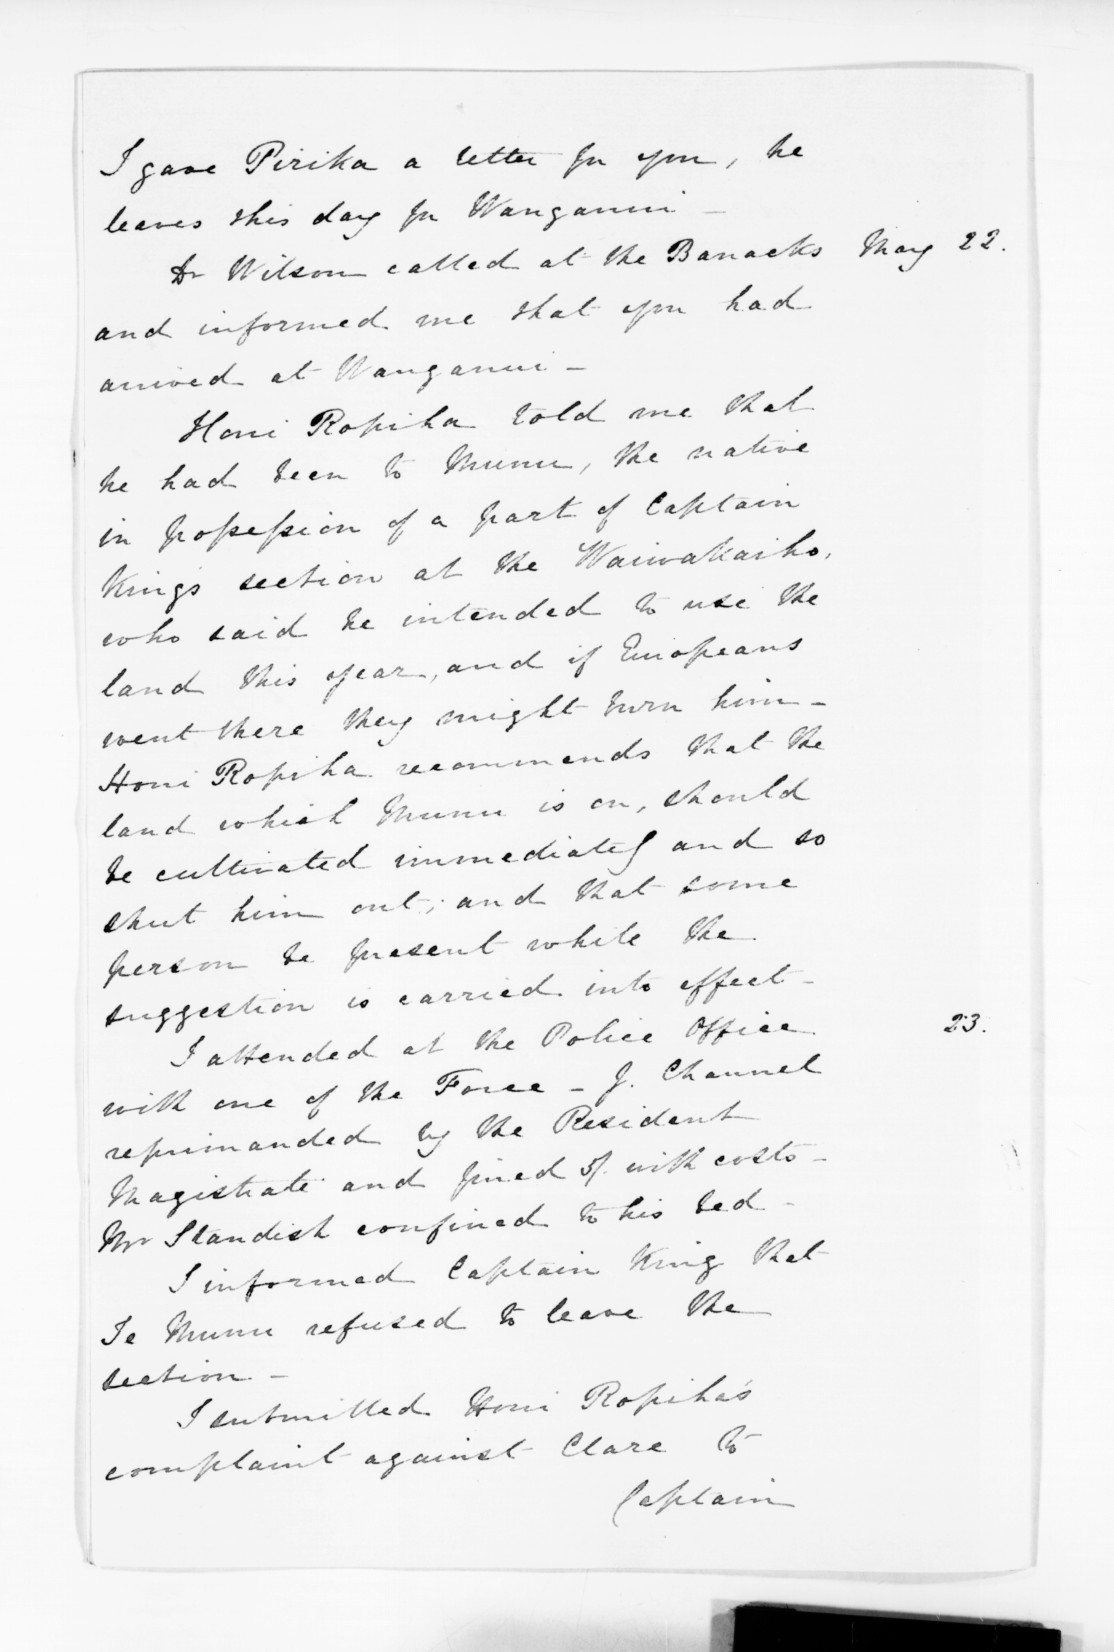 I gave Pirika a letter for you, he
leaves this day for Wanganui –
Dr Wilson called at the Barracks May 22.
and informed me that you had
arrived at Wanganui –
Honi Ropiha told me that
he had been to Munu, the native
in possession of a part of Captain
King's section at the Waiwakaiho,
who said he intended to use the
land this year, and if Europeans
went there they might turn him –
Honi Ropiha recommends that the
land which Munu is on, should
be cultivated immediately and so
shut him out; and that some
person be present while the
suggestion is carried into effect –
I attended at the Police Office 23.
with one of the Force – J. Channel
reprimanded by the Resident
Magistrate and fined 5/. with costs –
Mr Standish confined to his bed –
I informed Captain King that
Te Munu refused to leave the
section –
I submitted Honi Ropiha's
complaint against Clare to
Captain